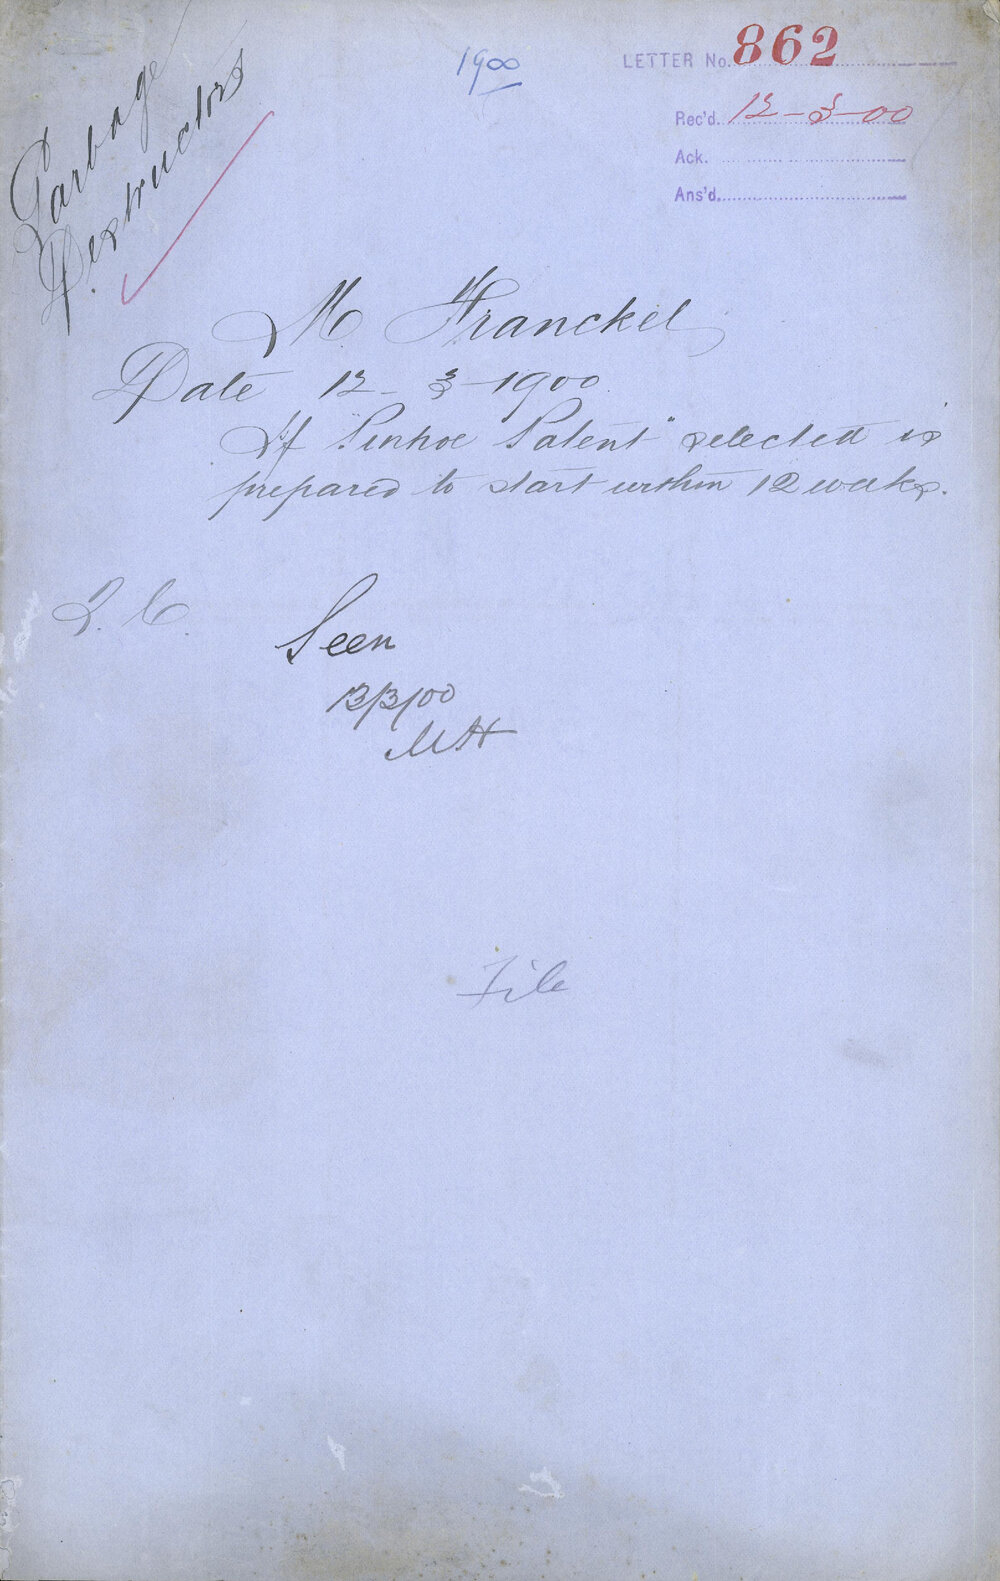 Garbage
Destructors
1900
LETTER No. 862
Rec'd. 12-3-00
Ack.
Ans'd.
M. Franckel
Date 12-3-1900
If "Pinhoe Patent" selected is
prepared to start within 12 weeks.
Seen
13/3/00
MH
File